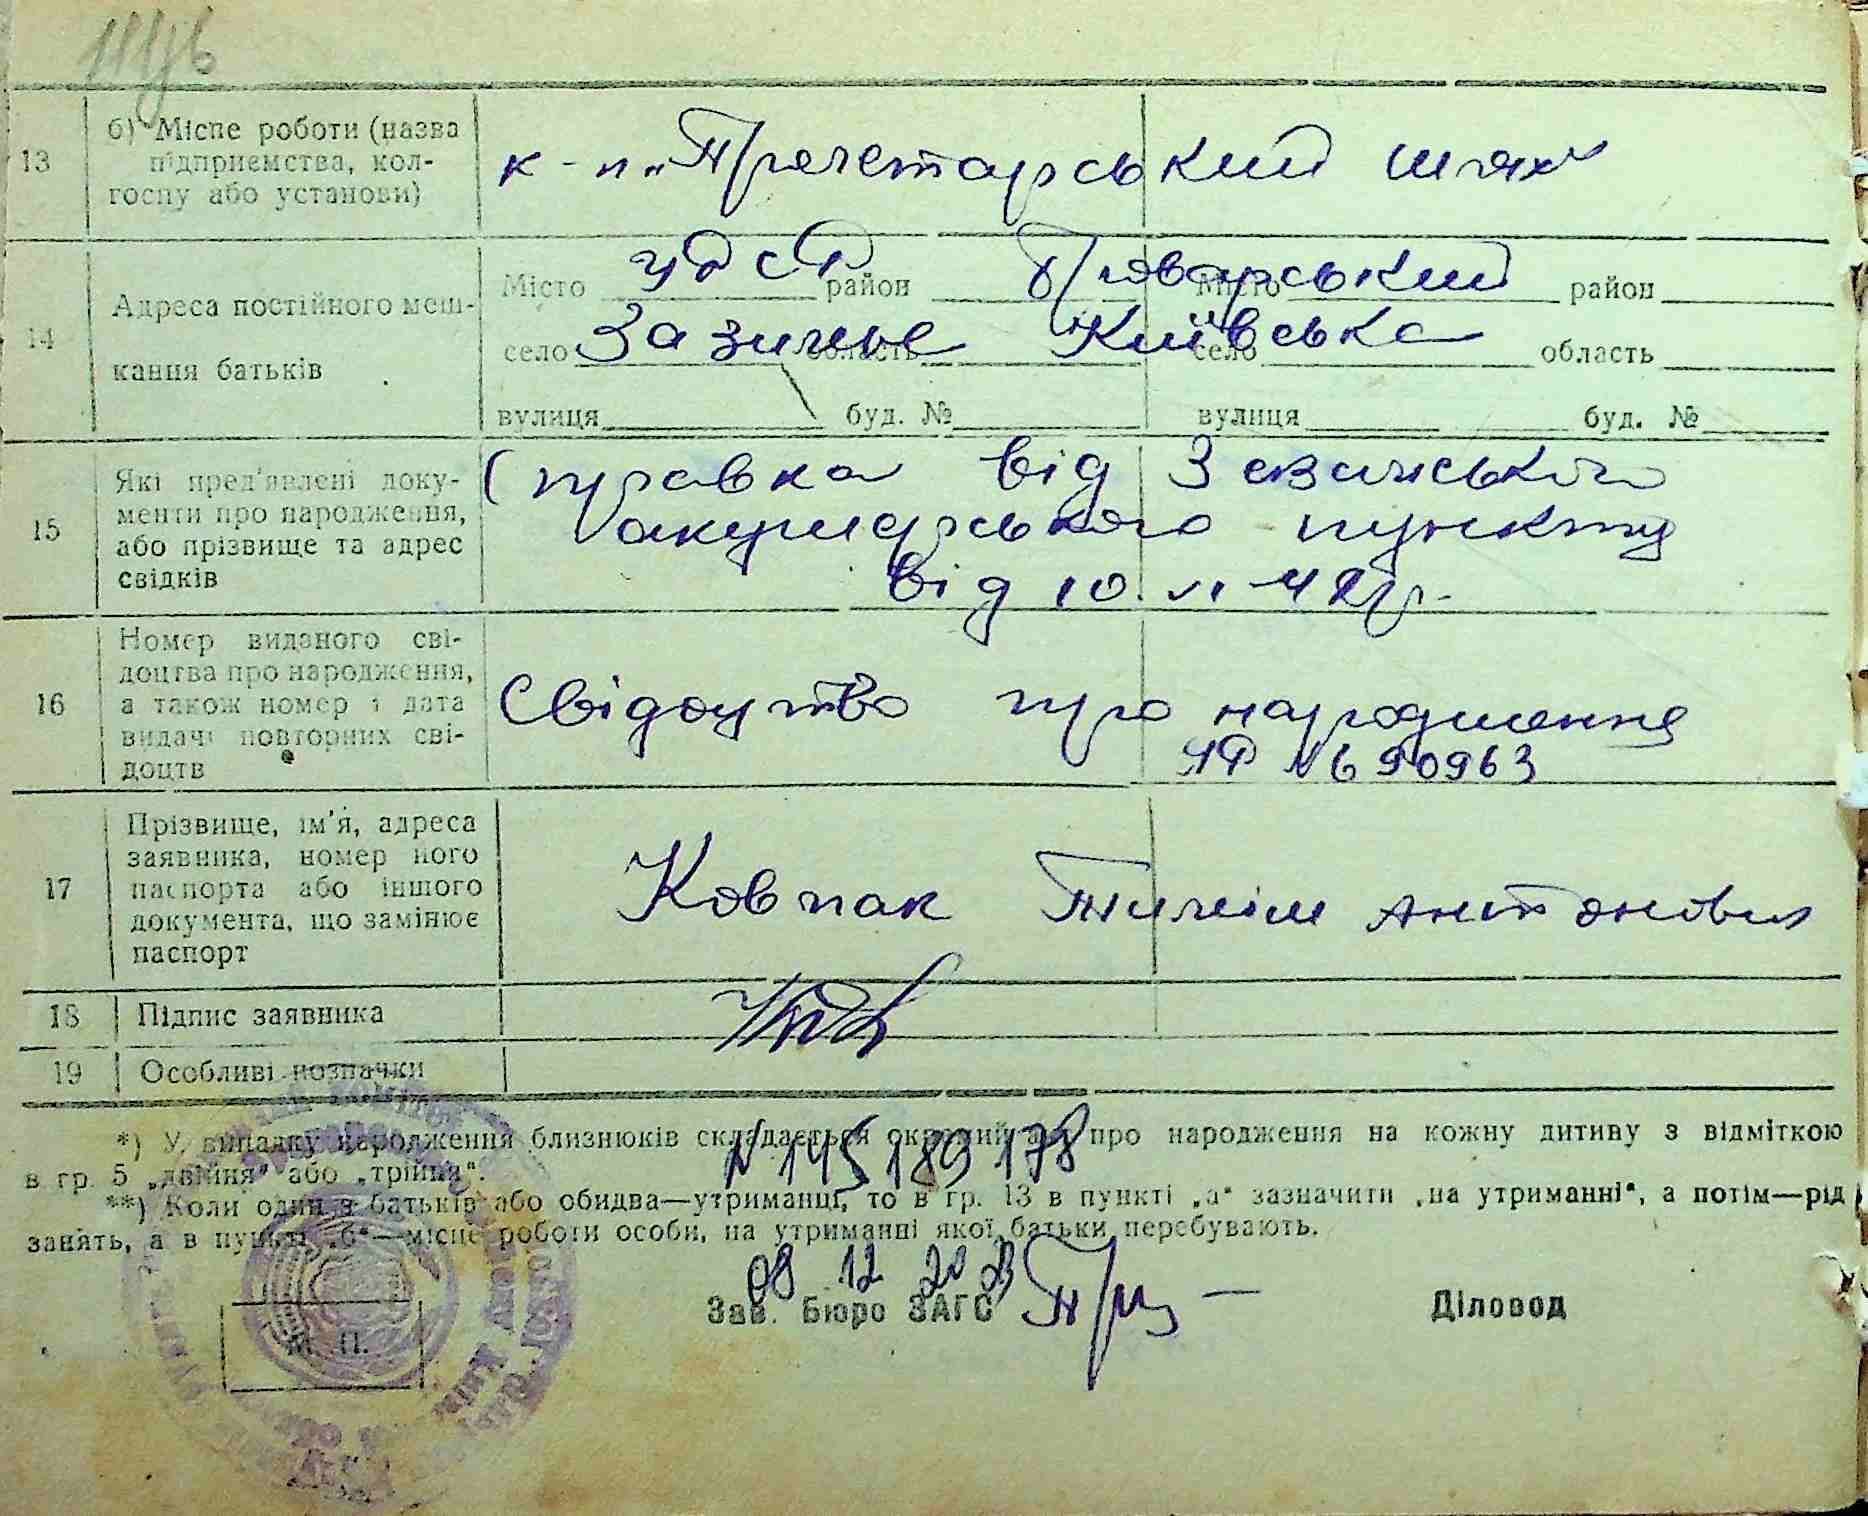 13 б) Місце роботи (назва
підприємства, кол-
госпу або установи)
к-п „Пролетарський шлях“
14 Адреса постійного меш-
кання батьків
Місто УРСР район Броварський Місто район
село Зазимье область Київська село область
вулиця буд. № вулиця буд. №
15 Які пред'явлені доку-
менти про народження,
або прізвище та адрес
свідків
Справка від
акушерського пункту
від 10
16 Номер виданого сві-
доцтва про народження,
а також номер і дата
видачі повторних сві-
доцтв
Свідоцтво про народження
№ 690963
17 Прізвище, ім'я, адреса
заявника, номер його
паспорта або іншого
документа, що замінює
паспорт
Ковпак Антонович
18 Підпис заявника
19 Особливі позначки
*) У випадку народження близнюків складається окремий акт про народження на кожну дитину з відміткою
в гр. 5 „двійня“ або „трійня“.
N 145 189 178
**) Коли один з батьків або обидва—утриманці, то в гр. 13 в пункті „а“ зазначити „на утриманні“, а потім—рід
занять, а в пункті „б“—місце роботи особи, на утриманні якої батьки перебувають.
08 12
Зав. Бюро ЗАГС Діловод
М. П.